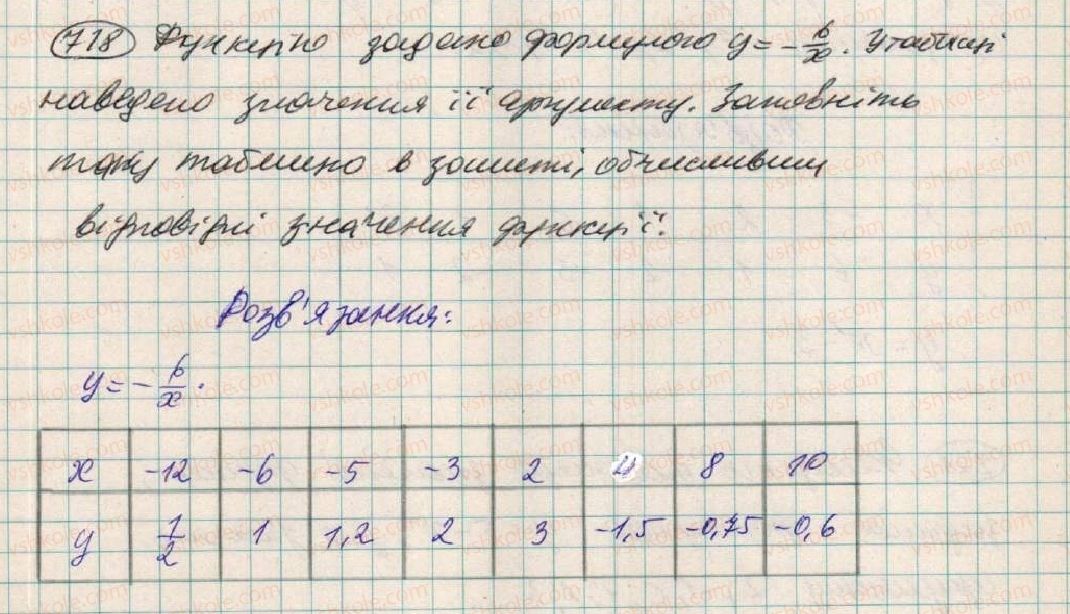 718 Функцію задано формулою y = - 6/x. У таблиці
наведено значення її аргументу. Заповніть
таку таблицю в зошиті, обчисливши
відповідні значення функції.
Розв'язання:
y = - 6/x.
x -12 -6 -5 -3 2 4 8 10
y 1/2 1 1,2 2 3 -1,5 -0,75 -0,6